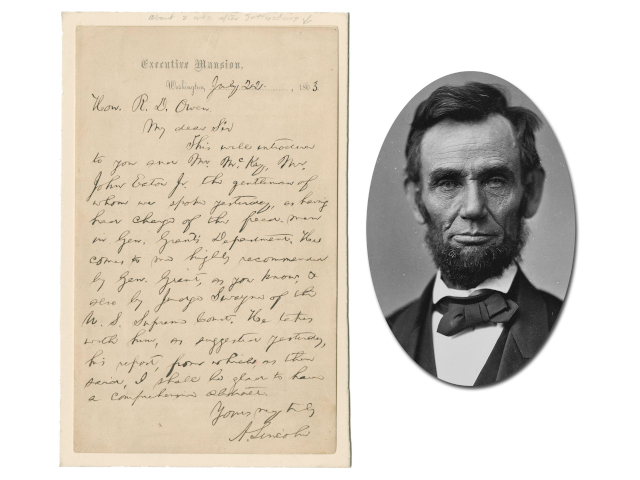 About 2 wks after Gettysburg
Executive Mansion,
Washington, July 22, 1863.
Hon. R. D. Owen
My dear Sir
This will introduce
to you and Mr McKay, Mr.
John Eaton Jr. the gentleman of
whom we spoke yesterday, as having
had charge of the freed-men
in Gen. Grant's Department. He
comes to me highly recommended
by Gen. Grant, as you know, &
also by Judge Swayne of the
U. S. Supreme Court. He takes
with him, as suggested yesterday,
his report, from which, as then
said, I shall be glad to have
a comprehensive abstract.
Yours very truly
A. Lincoln